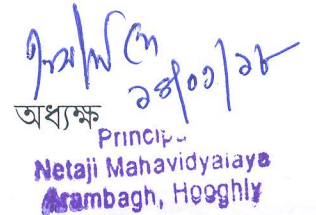 ১৪/০১/১৮
অধ্যক্ষ
Principal
Netaji Mahavidyalaya
Arambagh, Hooghly